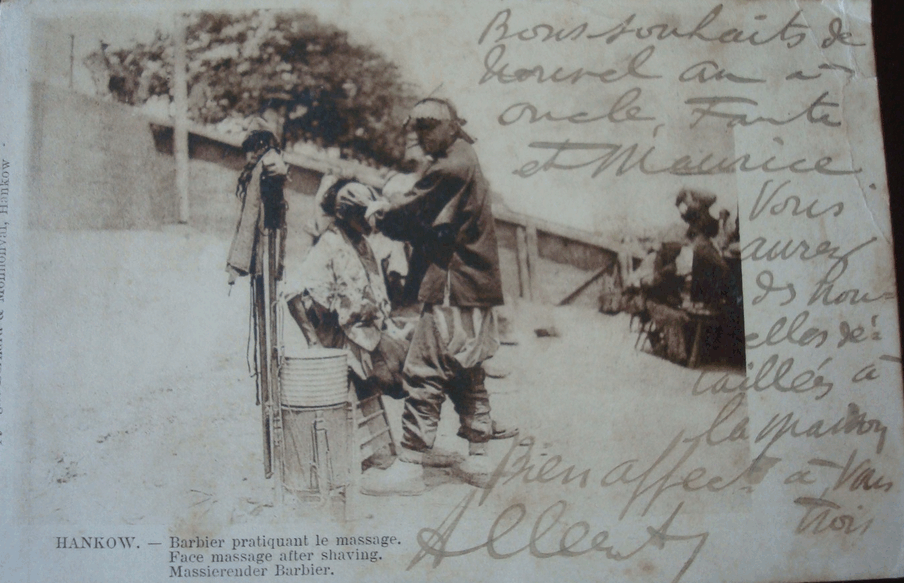 Bons souhaits de
nouvel an à
oncle, Fante
et Maurice
Vous
aurez
des nou-
velles dé-
taillés à
la maison
Bien affect. à vous
trois
Albert
HANKOW. — Barbier pratiquant le massage.
Face massage after shaving.
Massierender Barbier.
Hankow